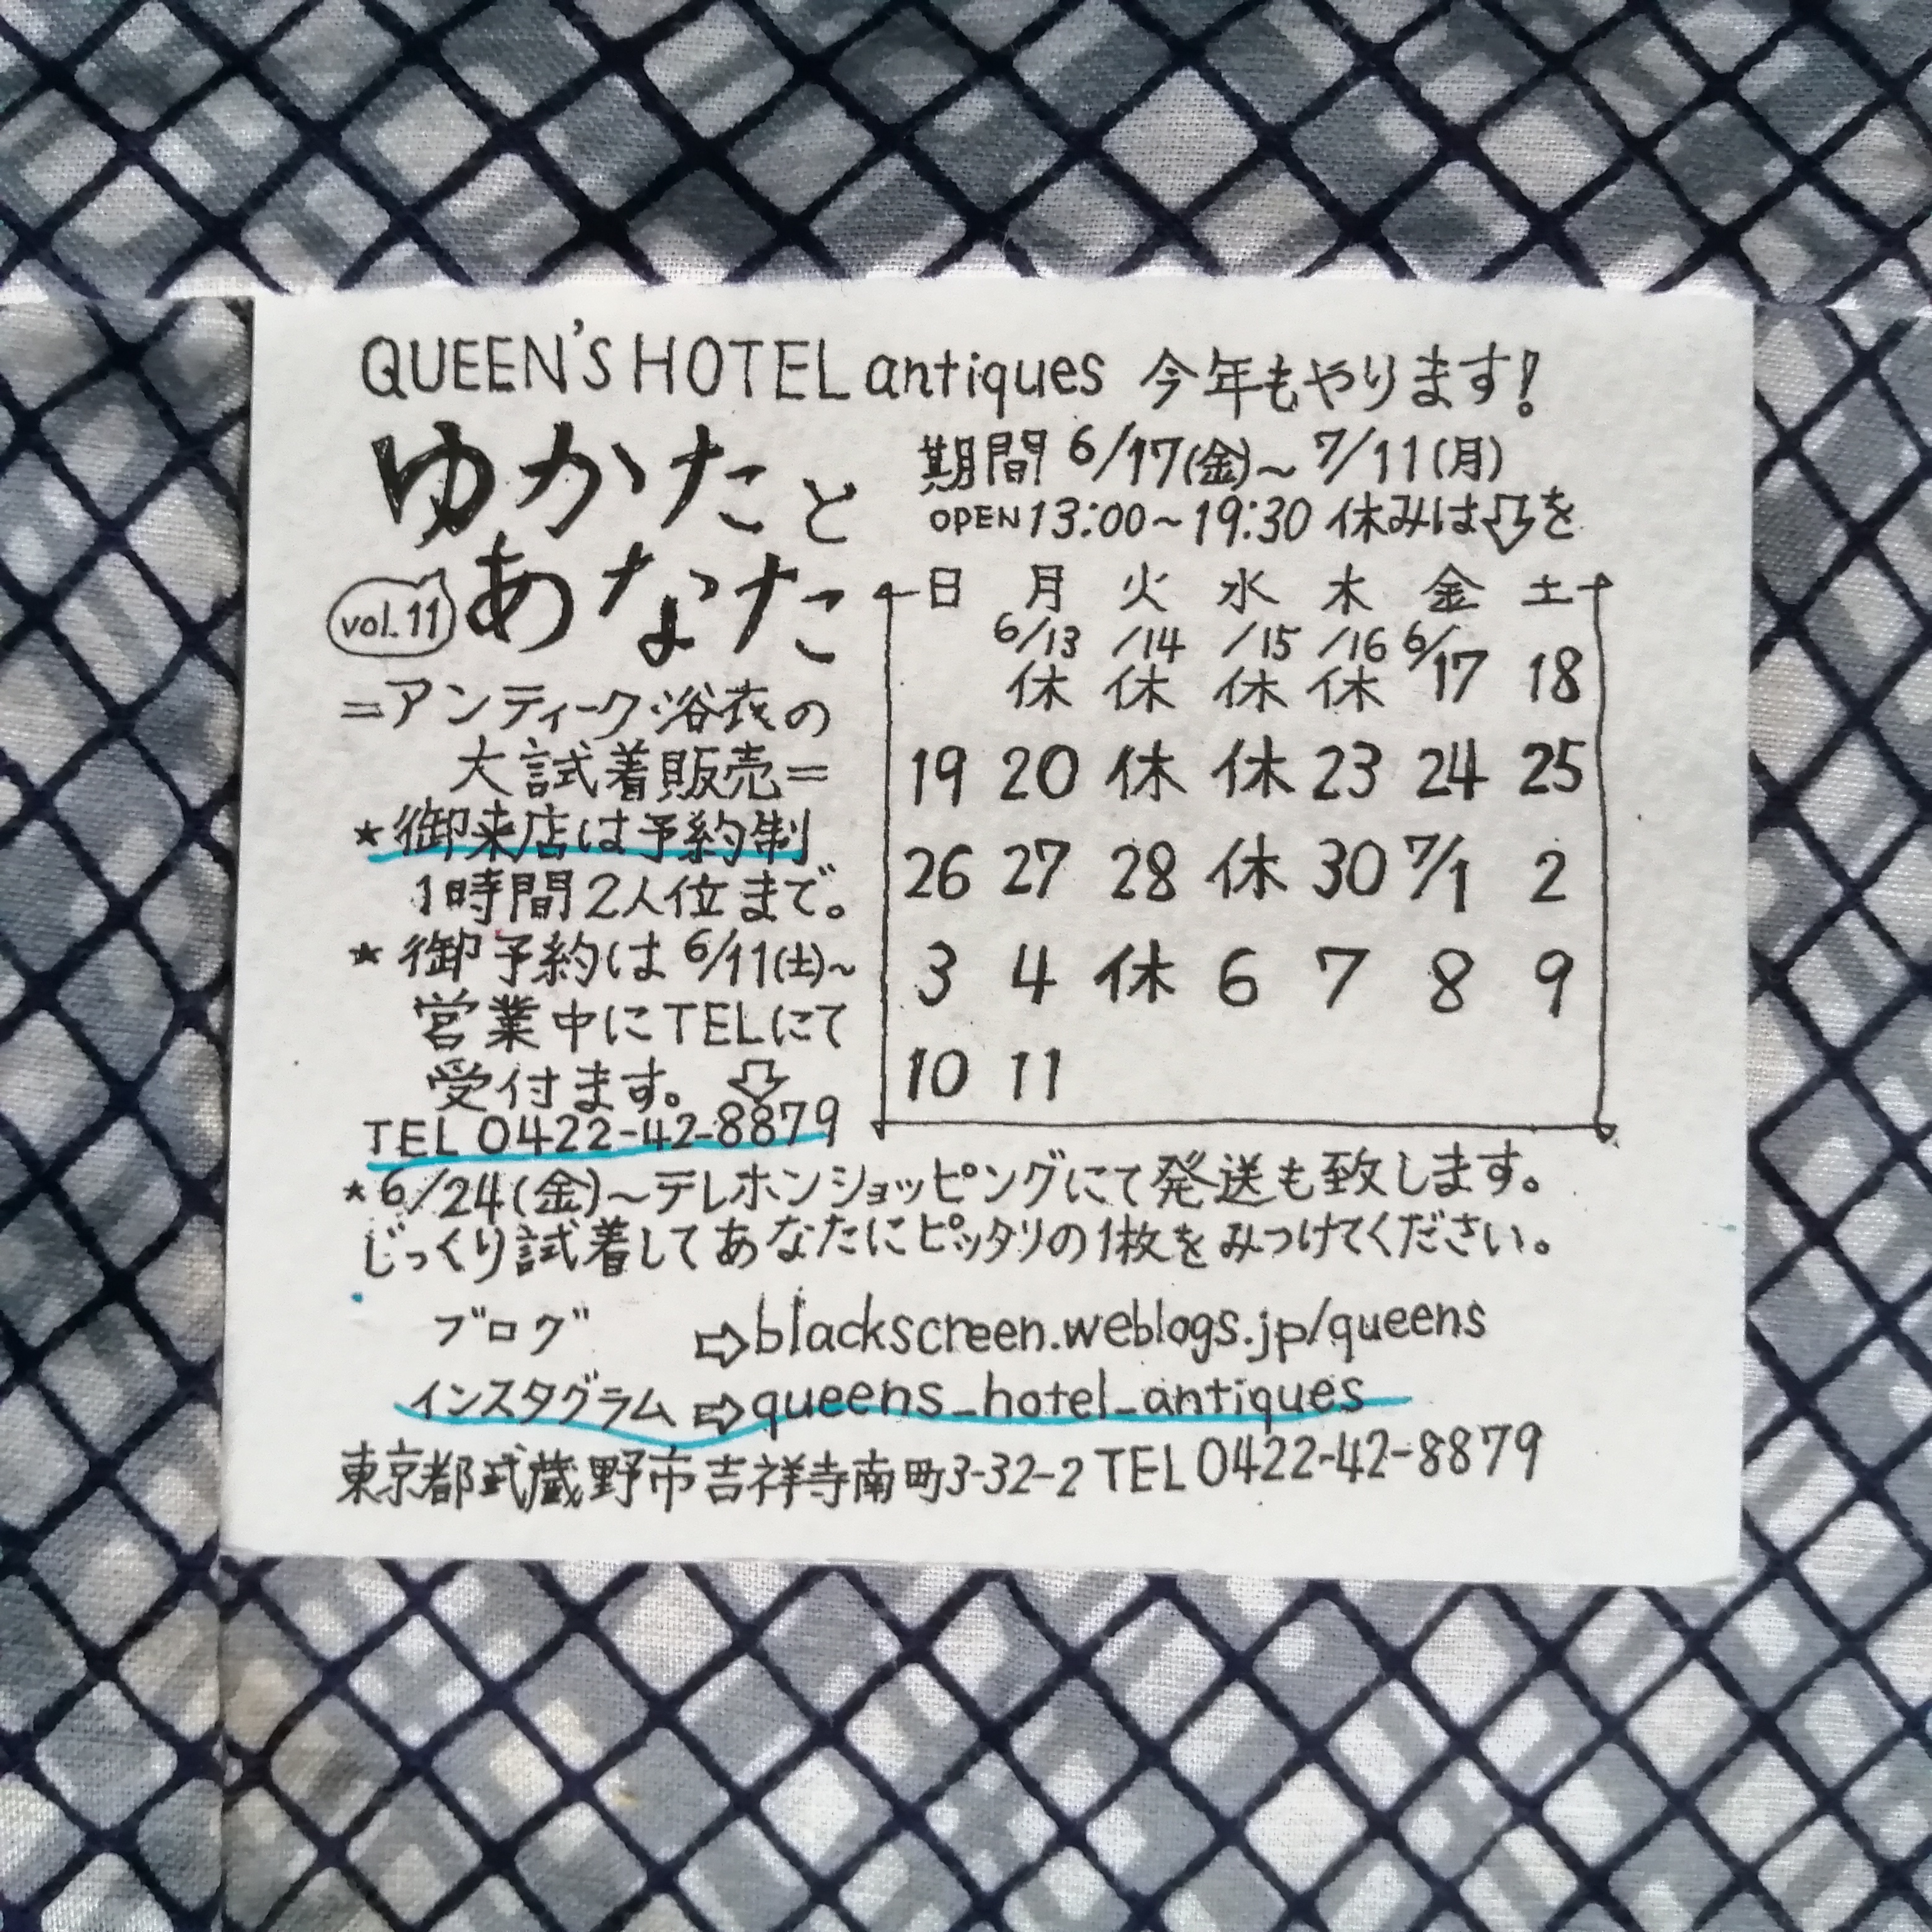 QUEEN'S HOTEL antiques 今年もやります!
ゆかたと
あなた
vol.11
期間 6/17(金)~7/11(月)
OPEN 13:00~19:30 休みは⇩を
日 月 火 水 木 金 土
6/13 /14 /15 /16 6/17 18
休 休 休 休
19 20 休 休 23 24 25
26 27 28 休 30 7/1 2
3 4 休 6 7 8 9
10 11
=アンティーク浴衣の
大試着販売=
*御来店は予約制
1時間2人位まで。
*御予約は6/11(土)~
営業中にTELにて
受付ます。⇩
TEL 0422-42-8879
*6/24(金)~テレホンショッピングにて発送も致します。
じっくり試着してあなたにピッタリの1枚をみつけてください。
ブログ ⇨blackscreen.weblogs.jp/queens
インスタグラム ⇨queens_hotel_antiques
東京都武蔵野市吉祥寺南町3-32-2 TEL 0422-42-8879